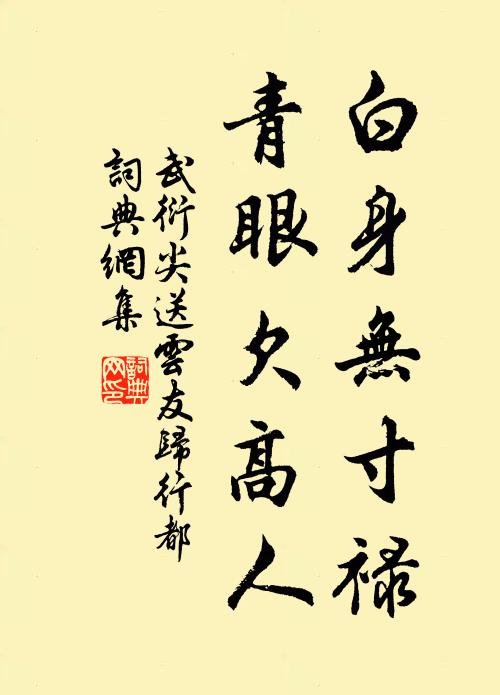 白身無寸祿
青眼欠高人
武衍尖送雲友歸行都
詞典網集
詞典網印